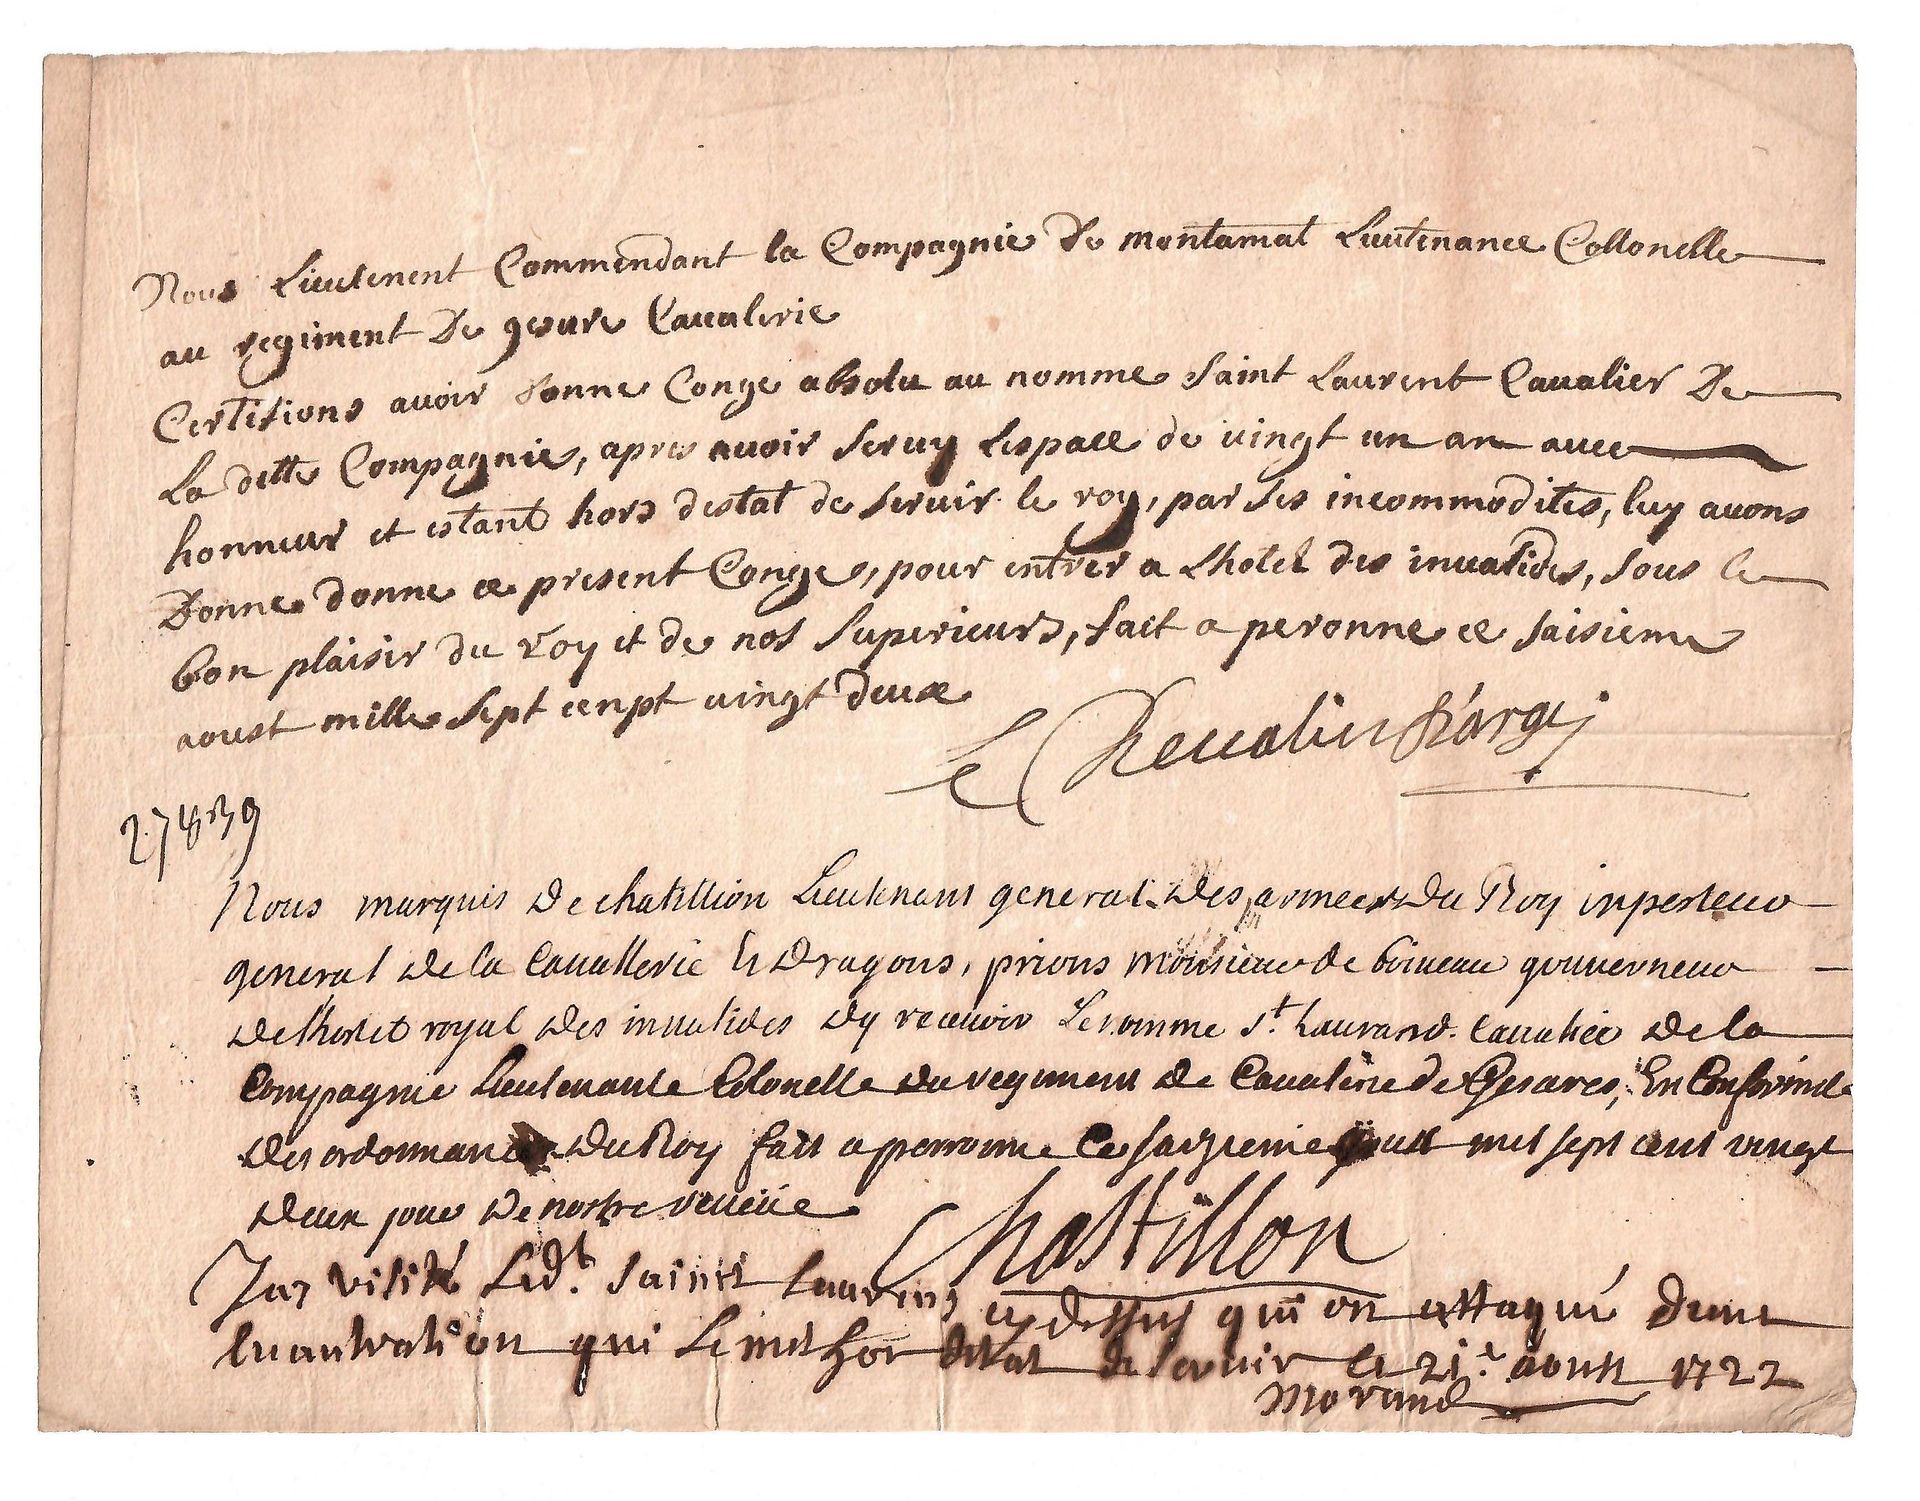 Nous Lieutenent Commendant la Compagnie De montamat Lieutenance Collonelle
au regiment De gesvre Cavalerie
Certifions avoir donne Conge absolu au nomme Saint Laurent Cavalier De
La ditte Compagnie, apres avoir servy Lespace de vingt un an avec
honneur et estant hors destat de servir le roy, par ses incommodites, luy avons
Donne donne ce present Conge, pour entrer a Lhotel des invalides, sous le
bon plaisir du roy et de nos Superieurs, fait a peronne ce saisieme
aoust mille Sept cenpt vingt deux
Le Chevalier D'argy
27839
Nous marquis De chatillion Lieutenant general Des armees Du Roy inpecteur
general De la Cavallerie Et Dragons, prions monsieur de boiveau gouverneur
De lhostel royal Des invalides Dy recevoir Le nomme St. Laurand. Cavalier De la
Compagnie Lieutenante Colonelle Du regiment De Cavalerie de Gesvres, En Conformite
Des ordonnances Du Roy fait a perronne Ce saizieme aoust mil sept cent vingt
Deux jour De nostre reveüe
Chastillon
Jay visité Led.t Saint Laurens cy dessus qui est attaqué dune
qui Le met hor detat de servir le 21.e aoust 1722
Morand